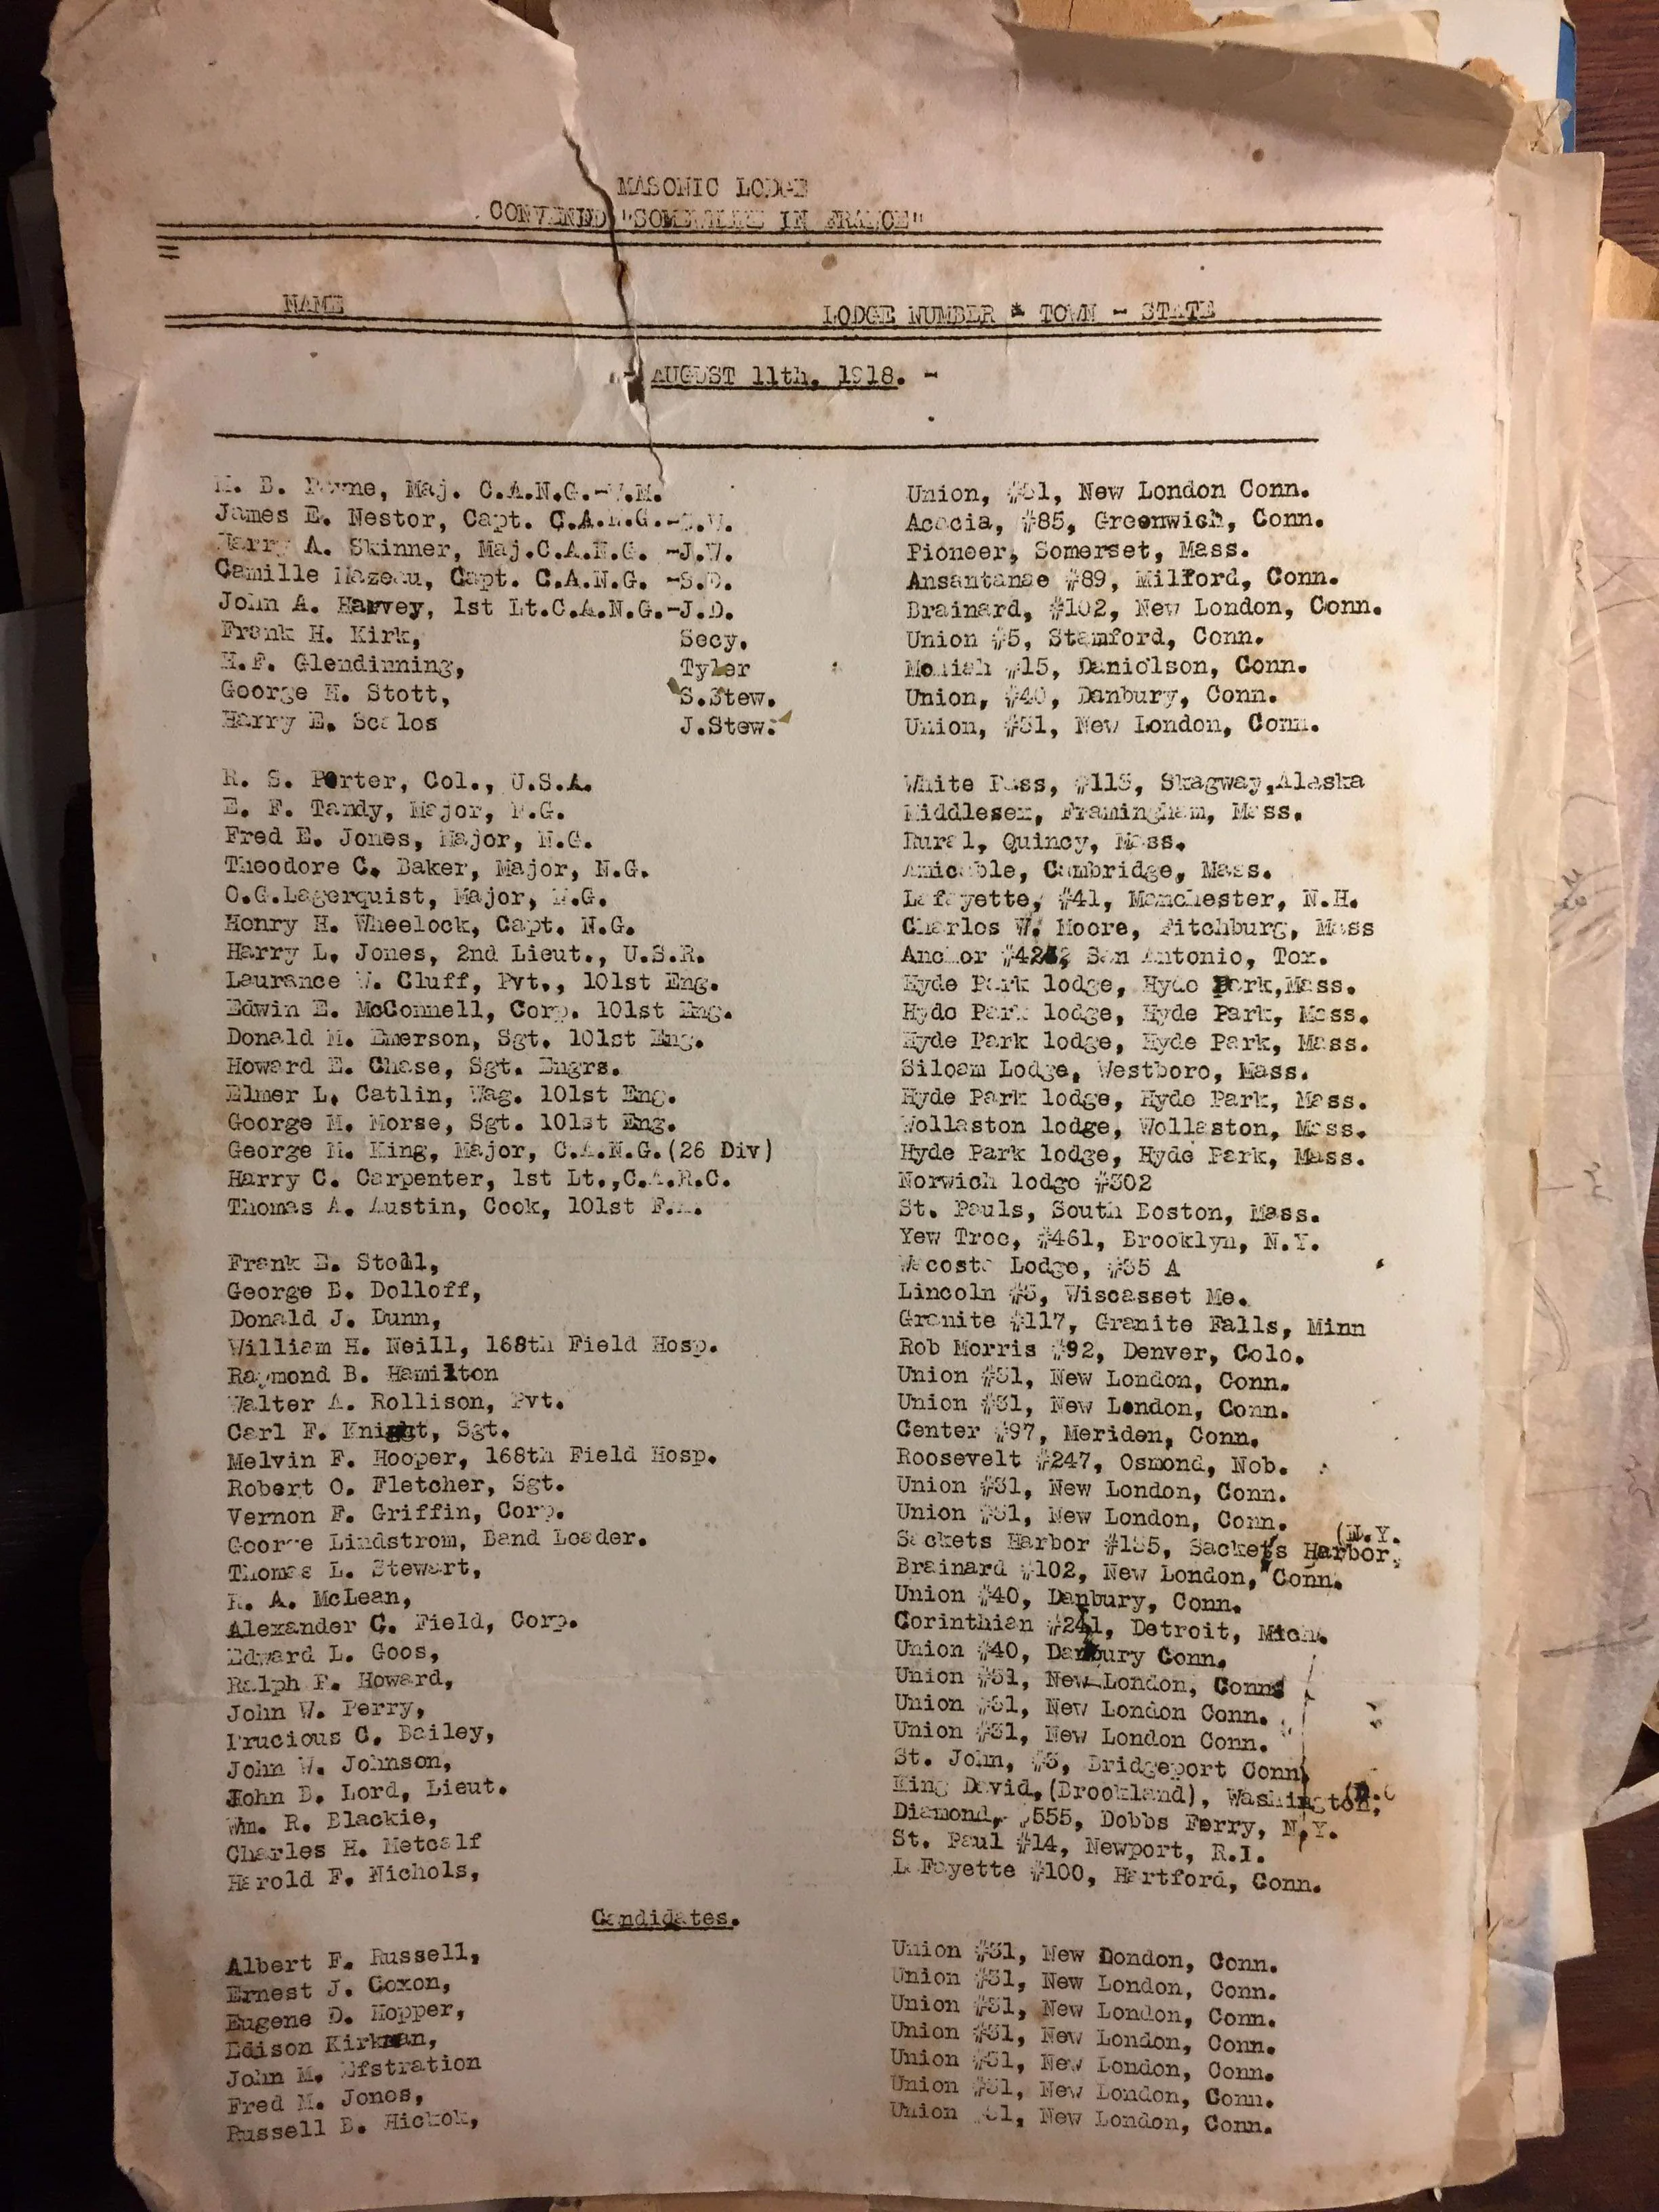 MASONIC LODGE
CONVENED "SOMEWHERE IN FRANCE"
NAME LODGE NUMBER * TOWN - STATE
- AUGUST 11th, 1918. -
B. Payne, Maj. C.A.N.G.-W.M. Union, #31, New London Conn.
James E. Nestor, Capt. C.A.N.G.-S.W. Acacia, #85, Greenwich, Conn.
Harry A. Skinner, Maj.C.A.N.G. -J.W. Pioneer, Somerset, Mass.
Camille Mazeau, Capt. C.A.N.G. -S.D. Ansantanae #89, Milford, Conn.
John A. Harvey, 1st Lt.C.A.N.G.-J.D. Brainard, #102, New London, Conn.
Frank H. Kirk, Secy. Union #5, Stamford, Conn.
H.F. Glendinning, Tyler Moriah #15, Danielson, Conn.
George H. Stott, S.Stew. Union, #40, Danbury, Conn.
Harry E. Scales J.Stew. Union, #31, New London, Conn.
R. S. Porter, Col., U.S.A. White Pass, #113, Skagway,Alaska
E. F. Tandy, Major, N.G. Middlesex, Framingham, Mass.
Fred E. Jones, Major, N.G. Rural, Quincy, Mass.
Theodore C. Baker, Major, N.G. Amicable, Cambridge, Mass.
O.G.Lagerquist, Major, N.G. Lafayette, #41, Manchester, N.H.
Henry H. Wheelock, Capt. N.G. Charles W. Moore, Fitchburg, Mass
Harry L. Jones, 2nd Lieut., U.S.R. Anchor San Antonio, Tex.
Laurance W. Cluff, Pvt., 101st Eng. Hyde Park lodge, Hyde Park,Mass.
Edwin E. McConnell, Corp. 101st Eng. Hyde Park lodge, Hyde Park, Mass.
Donald M. Emerson, Sgt. 101st Eng. Hyde Park lodge, Hyde Park, Mass.
Howard E. Chase, Sgt. Engrs. Siloam Lodge, Westboro, Mass.
Elmer L. Catlin, Wag. 101st Eng. Hyde Park lodge, Hyde Park, Mass.
George M. Morse, Sgt. 101st Eng. Wollaston lodge, Wollaston, Mass.
George H. King, Major, C.A.N.G.(26 Div) Hyde Park lodge, Hyde Park, Mass.
Harry C. Carpenter, 1st Lt.,C.A.R.C. Norwich lodge #302
Thomas A. Austin, Cook, 101st F.A. St. Pauls, South Boston, Mass.
Yew Tree, #461, Brooklyn, N.Y.
Frank E. Stoll, Wacosta Lodge, #35 A
George B. Dolloff, Lincoln #3, Wiscasset Me.
Donald J. Dunn, Granite #117, Granite Falls, Minn
William H. Neill, 168th Field Hosp. Rob Morris #92, Denver, Colo.
Raymond B. Hamilton Union #31, New London, Conn.
Walter A. Rollison, Pvt. Union #31, New London, Conn.
Carl F. Knight, Sgt. Center #97, Meriden, Conn.
Melvin F. Hooper, 168th Field Hosp. Roosevelt #247, Osmond, Neb.
Robert O. Fletcher, Sgt. Union #31, New London, Conn.
Vernon F. Griffin, Corp. Union #31, New London, Conn.
George Lindstrom, Band Leader. Sackets Harbor #135, Sackets Harbor, (N.Y.
Thomas L. Stewart, Brainard #102, New London, Conn.
R. A. McLean, Union #40, Danbury, Conn.
Alexander C. Field, Corp. Corinthian #241, Detroit, Mich.
Edward L. Goos, Union #40, Danbury Conn.
Ralph F. Howard, Union #31, New London, Conn.
John W. Perry, Union #31, New London Conn.
Prucious C. Bailey, Union #31, New London Conn.
John W. Johnson, St. John, #3, Bridgeport Conn.
John B. Lord, Lieut. King David,(Brookland), Washington, (D.C
Wm. R. Blackie, Diamond, #555, Dobbs Ferry, N.Y.
Charles H. Metcalf St. Paul #14, Newport, R.I.
Harold F. Nichols, LaFayette #100, Hartford, Conn.
Candidates.
Albert F. Russell, Union #31, New Dondon, Conn.
Ernest J. Coxon, Union #31, New London, Conn.
Eugene D. Hopper, Union #31, New London, Conn.
Edison Kirkman, Union #31, New London, Conn.
John M. Efstration Union #31, New London, Conn.
Fred M. Jones, Union #31, New London, Conn.
Russell B. Hickok, Union #31, New London, Conn.